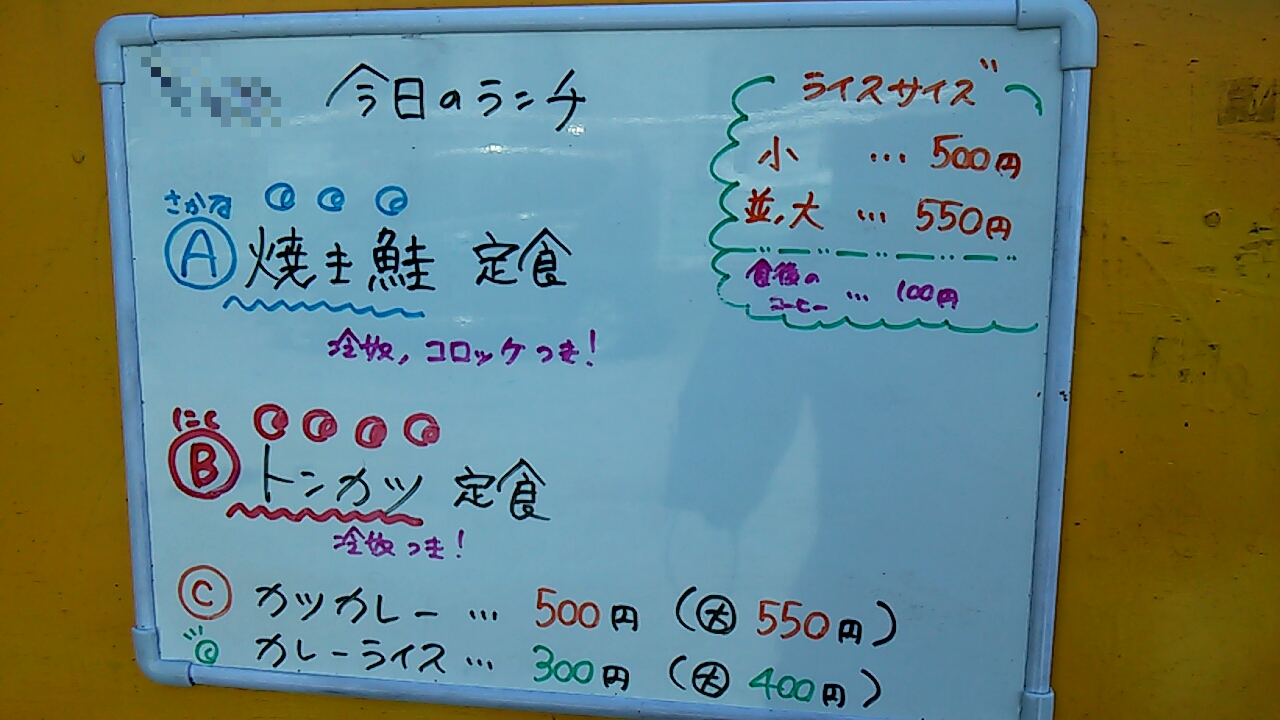 今日のランチ
さかな
Ⓐ 焼き鮭 定食
冷奴, コロッケつき!
にく
Ⓑ トンカツ 定食
冷奴つき!
Ⓒ カツカレー … 500円 (大 550円)
カレーライス … 300円 (大 400円)
ライスサイズ
小 … 500円
並, 大 … 550円
食後の
コーヒー … 100円